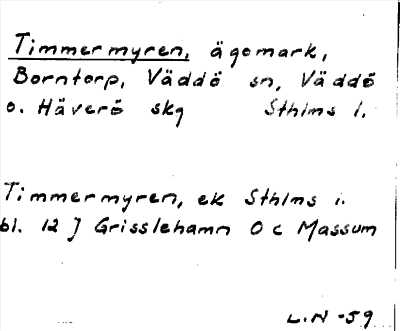 Timmermyren, ägomark,
Borntorp, Väddö sn, Väddö
o. Häverö skg Sthlms l.
Timmermyren, ek Sthlms i.
bl. 12 J Grisslehamn O c Massum
L.N -59